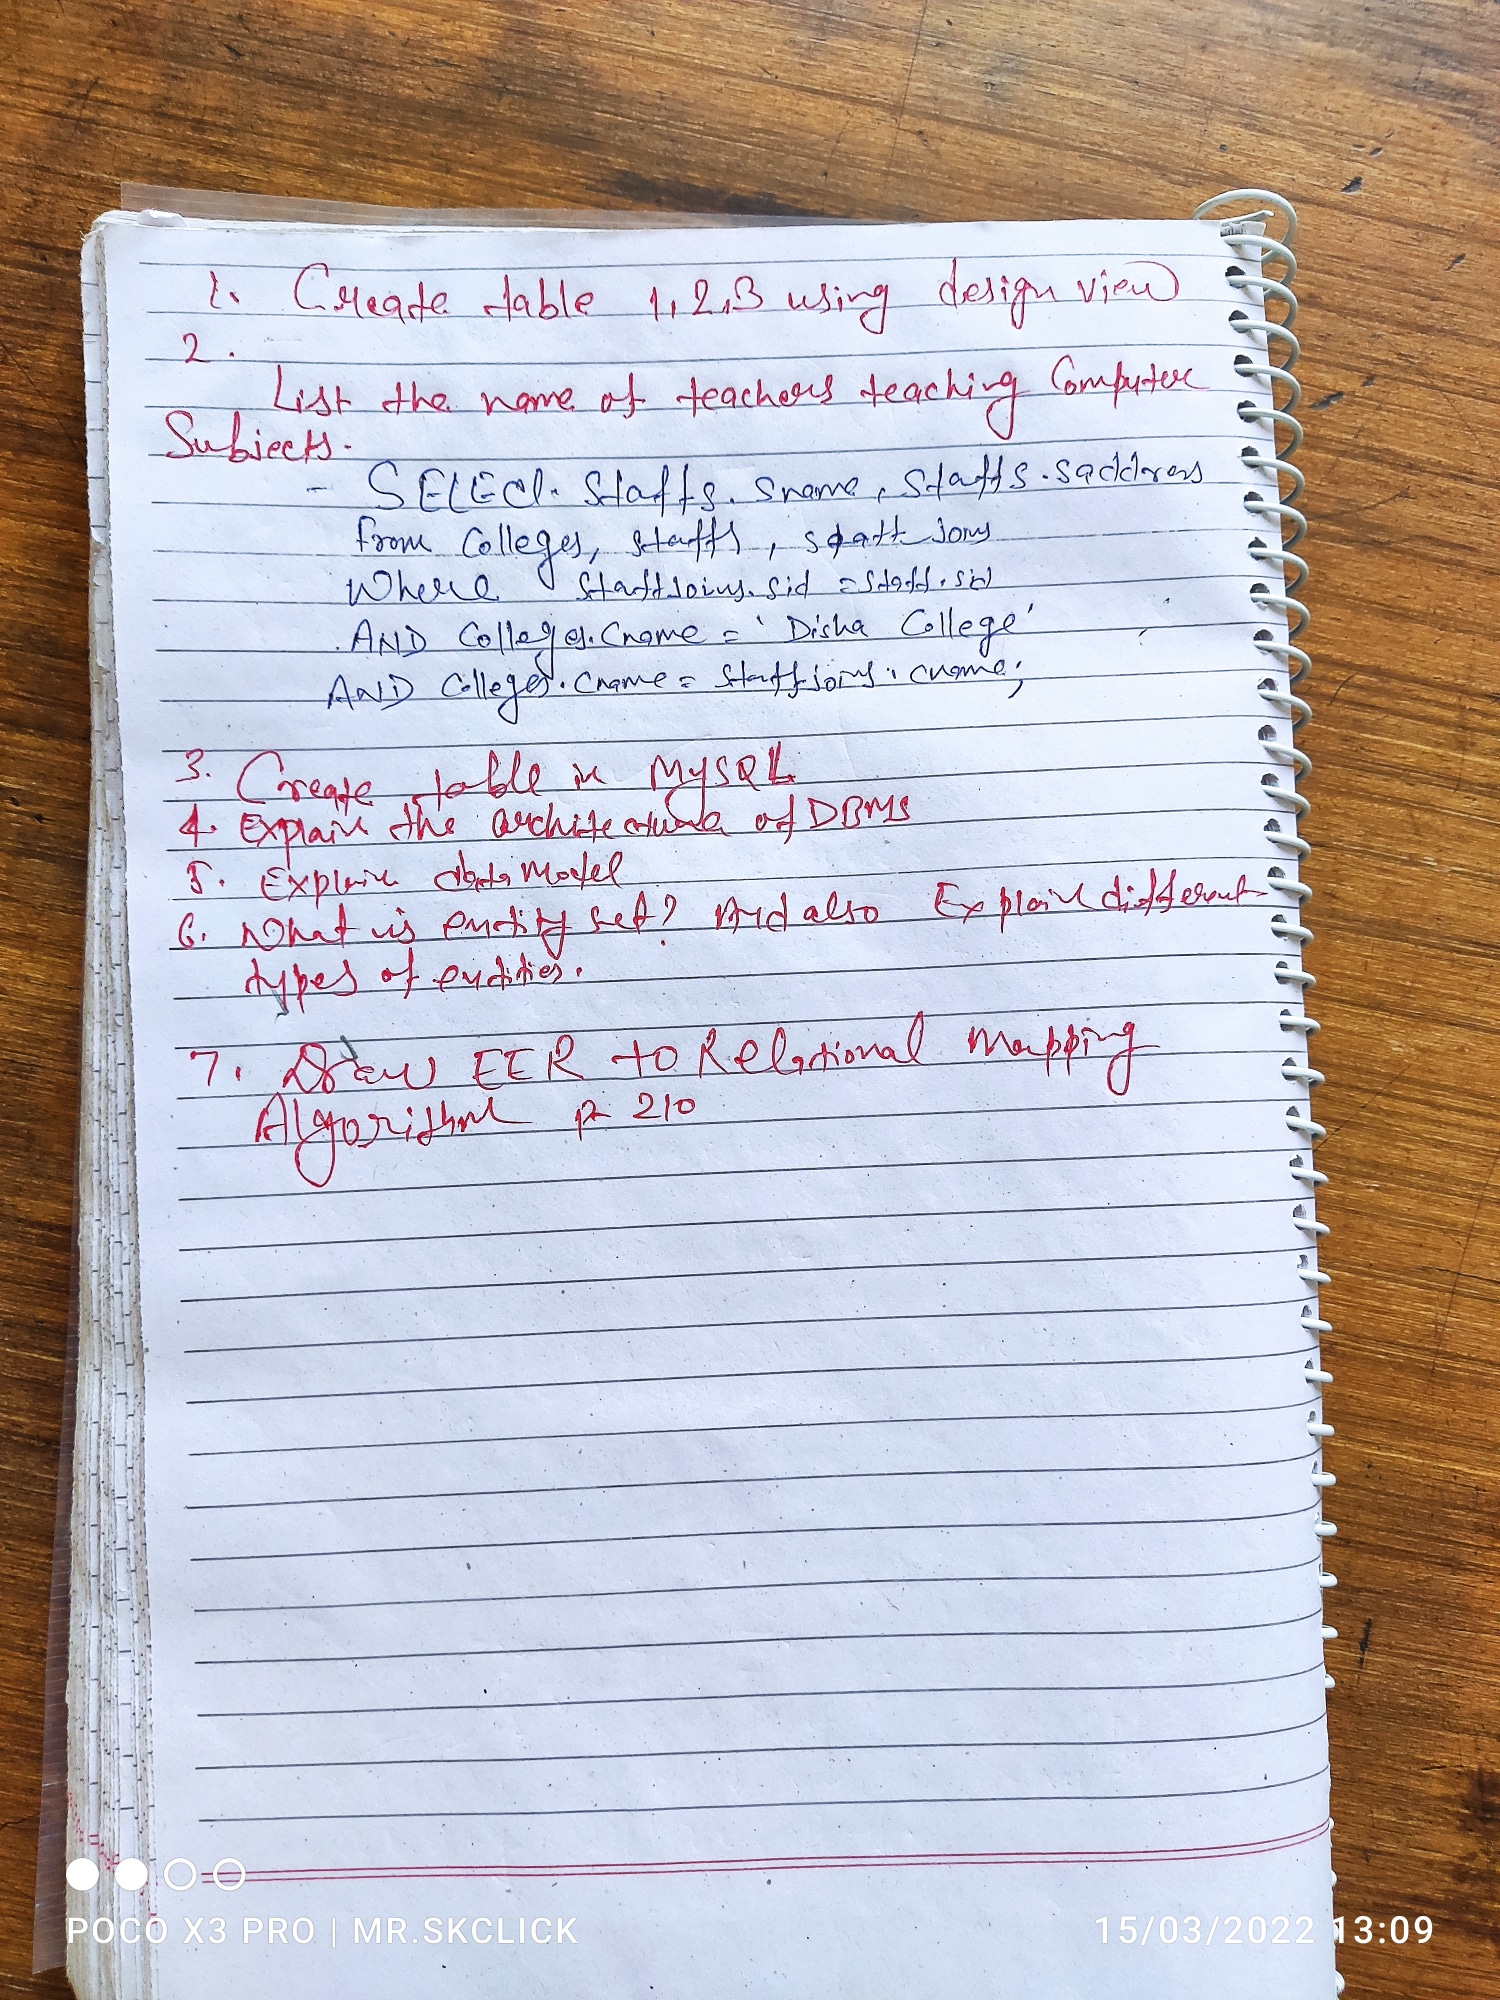 1. Create table 1,2,3 using design view
2.
List the name of teachers teaching Computer
Subjects.
- SELECT. Staffs. Sname, Staffs.saddress
from Colleges, staffs, staff joins
Where Staffjoins.sid = staff.sid
AND Colleges.Cname = 'Disha College'
AND Colleges.Cname = staffjoins.cname;
3. Create table in MySQL
4. Explain the architecture of DBMS
5. Explain data Model
6. What is entity set? And also Explain different
types of entities.
7. Draw EER to Relational Mapping
Algorithm P 210
POCO X3 PRO | MR.SKCLICK
15/03/2022 13:09